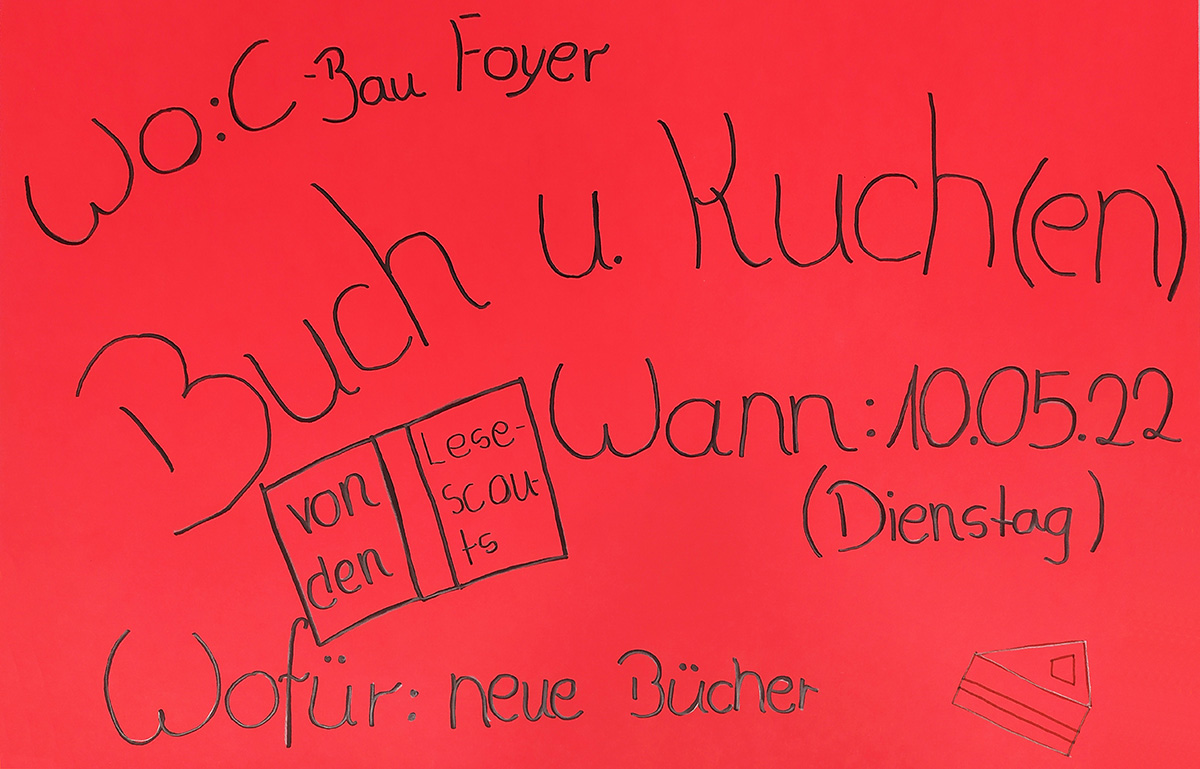 Wo: C-Bau Foyer
Buch u. Kuch(en)
von
den
Lese-
scou-
ts
Wann: 10.05.22
(Dienstag)
Wofür: neue Bücher